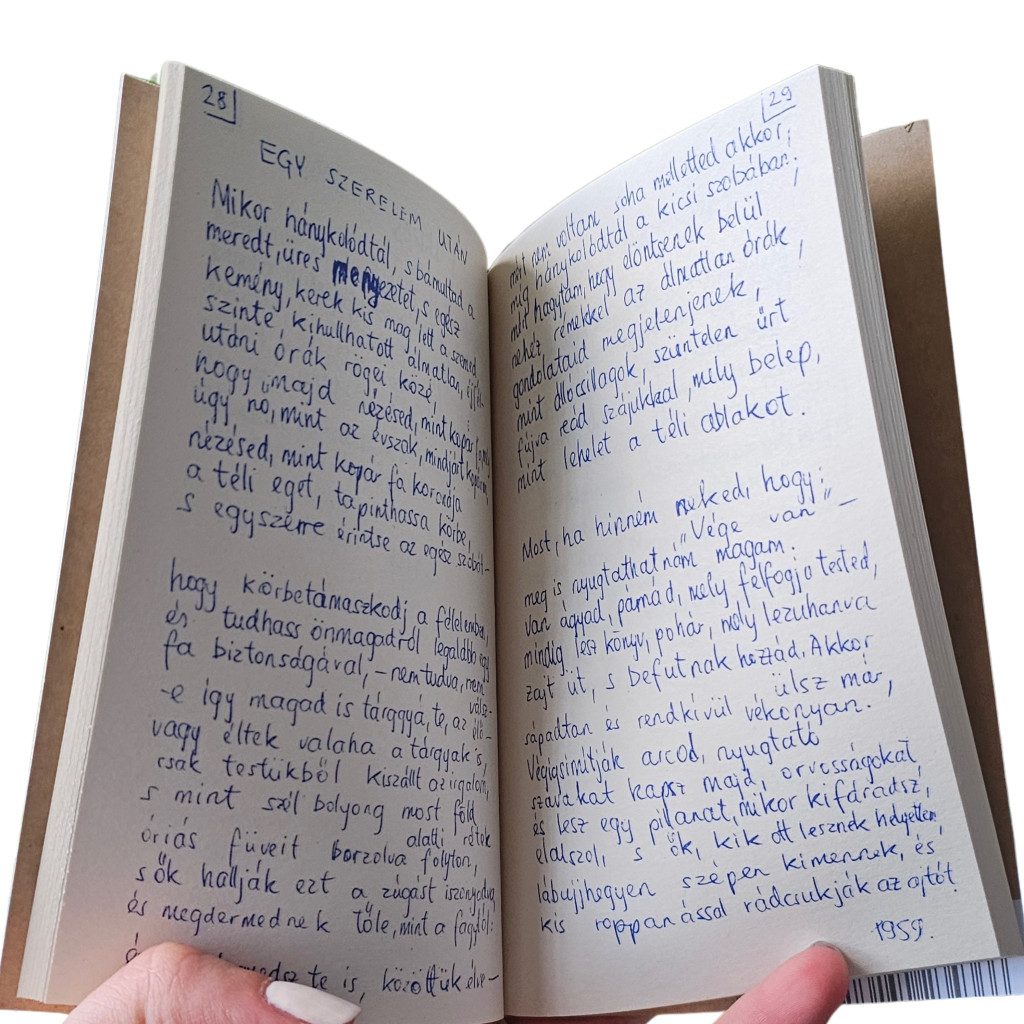 28
EGY SZERELEM UTÁN
Mikor hánykolódtál, s bámultad a
meredt, üres mennyezetet, s egész
kemény, kerek kis mag lett a szemed
szinte kihullhatott álmatlan, éjfél-
utáni órák rögei közé,
hogy majd nézésed, mint kopár
úgy nő, mint az évszak, mindjárt
nézésed, mint kopár fa koronája
a téli eget, tapinthassa körbe,
s egyszerre érintse az egész szobát –
hogy körbetámaszkodj a félelemben,
és tudhass önmagadról legalább egy
fa biztonságával, – nem tudva, nem válsz-
-e így magad is tárggyá, te, az élő –
vagy éltek valaha a tárgyak is,
csak testükből kiszállt az irgalom,
s mint szél bolyong most föld
alatti rétek
óriás füveit borzolva folyton,
s ők hallják ezt a zúgást iszonyodva
és megdermednek tőle, mint a fagytól:
te is, közöttük élve –
29
mért nem voltam soha melletted akkor,
míg hánykolódtál a kicsi szobában,
mért hagytam, hogy elöntsenek belül
nehéz rémekkel az álmatlan órák,
gondolataid megjelenjenek,
mint állócsillagok, szüntelen űrt
fújva reád szájukkal, mely belep,
mint lehelet a téli ablakot.
Most, ha hinném neked, hogy:
„Vége van” –
meg is nyugtathatnám magam:
van ágyad, párnád, mely felfogja tested,
mindig lesz könyv, pohár, mely lezuhanva
zajt üt, s befutnak hozzád. Akkor
ülsz már,
sápadtan és rendkívül vékonyan.
Végigsimítják arcod, nyugtató
szavakat kapsz majd, orvosságokat
és lesz egy pillanat, mikor kifáradsz,
elalszol, s ők, kik ott lesznek helyettem,
lábujjhegyen szépen kimennek, és
kis roppanással rádcsukják az ajtót.
1959.